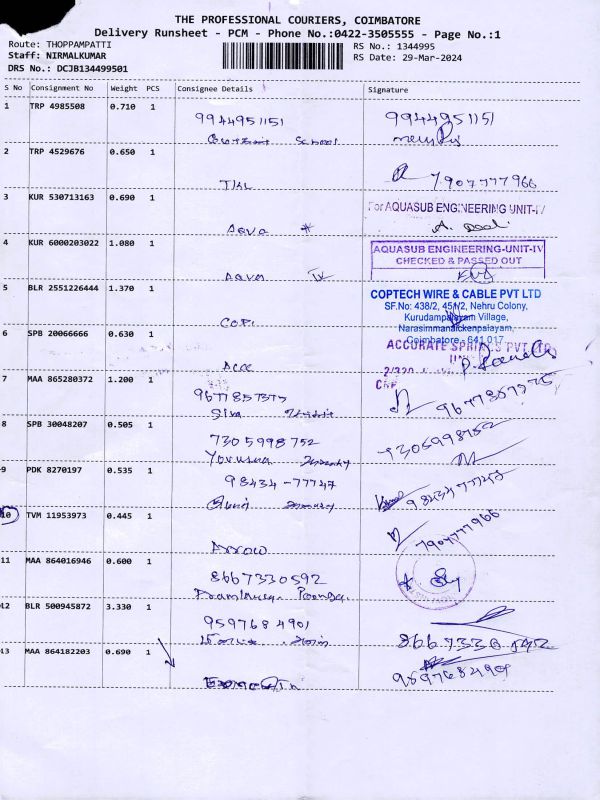 THE PROFESSIONAL COURIERS, COIMBATORE
Delivery Runsheet - PCM - Phone No.:0422-3505555 - Page No.:1
Route: THOPPAMPATTI
RS No.: 1344995
Staff: NIRMALKUMAR
RS Date: 29-Mar-2024
DRS No.: DCJB134499501
S No Consignment No Weight PCS Consignee Details Signature
1 TRP 4985508 0.710 1
9944951151 9944951151
School
2 TRP 4529676 0.650 1
7907777966
3 KUR 530713163 0.690 1
For AQUASUB ENGINEERING UNIT-IV
Aqua
4 KUR 6000203022 1.080 1
AQUASUB ENGINEERING-UNIT-IV
CHECKED & PASSED OUT
Aqua IV
5 BLR 2551226444 1.370 1
COPTECH WIRE & CABLE PVT LTD
SF.No: 438/2, 451/2, Nehru Colony,
Kurudampalayam Village,
Narasimmanaickenpalayam,
Coimbatore - 641 017
COPT
6 SPB 20066666 0.630 1
ACCURATE SPRINGS PVT LTD
Acce
7 MAA 865280372 1.200 1
9677857375 9677857375
Siva
8 SPB 30048207 0.505 1
7305998752 7305998752
9 PDK 8270197 0.535 1
98434-77747 9843477747
10 TVM 11953973 0.445 1
7907777966
Arrow
11 MAA 864016946 0.600 1
8667330592
12 BLR 500945872 3.330 1
9597684901
8667330592
13 MAA 864182203 0.690 1
9597684901